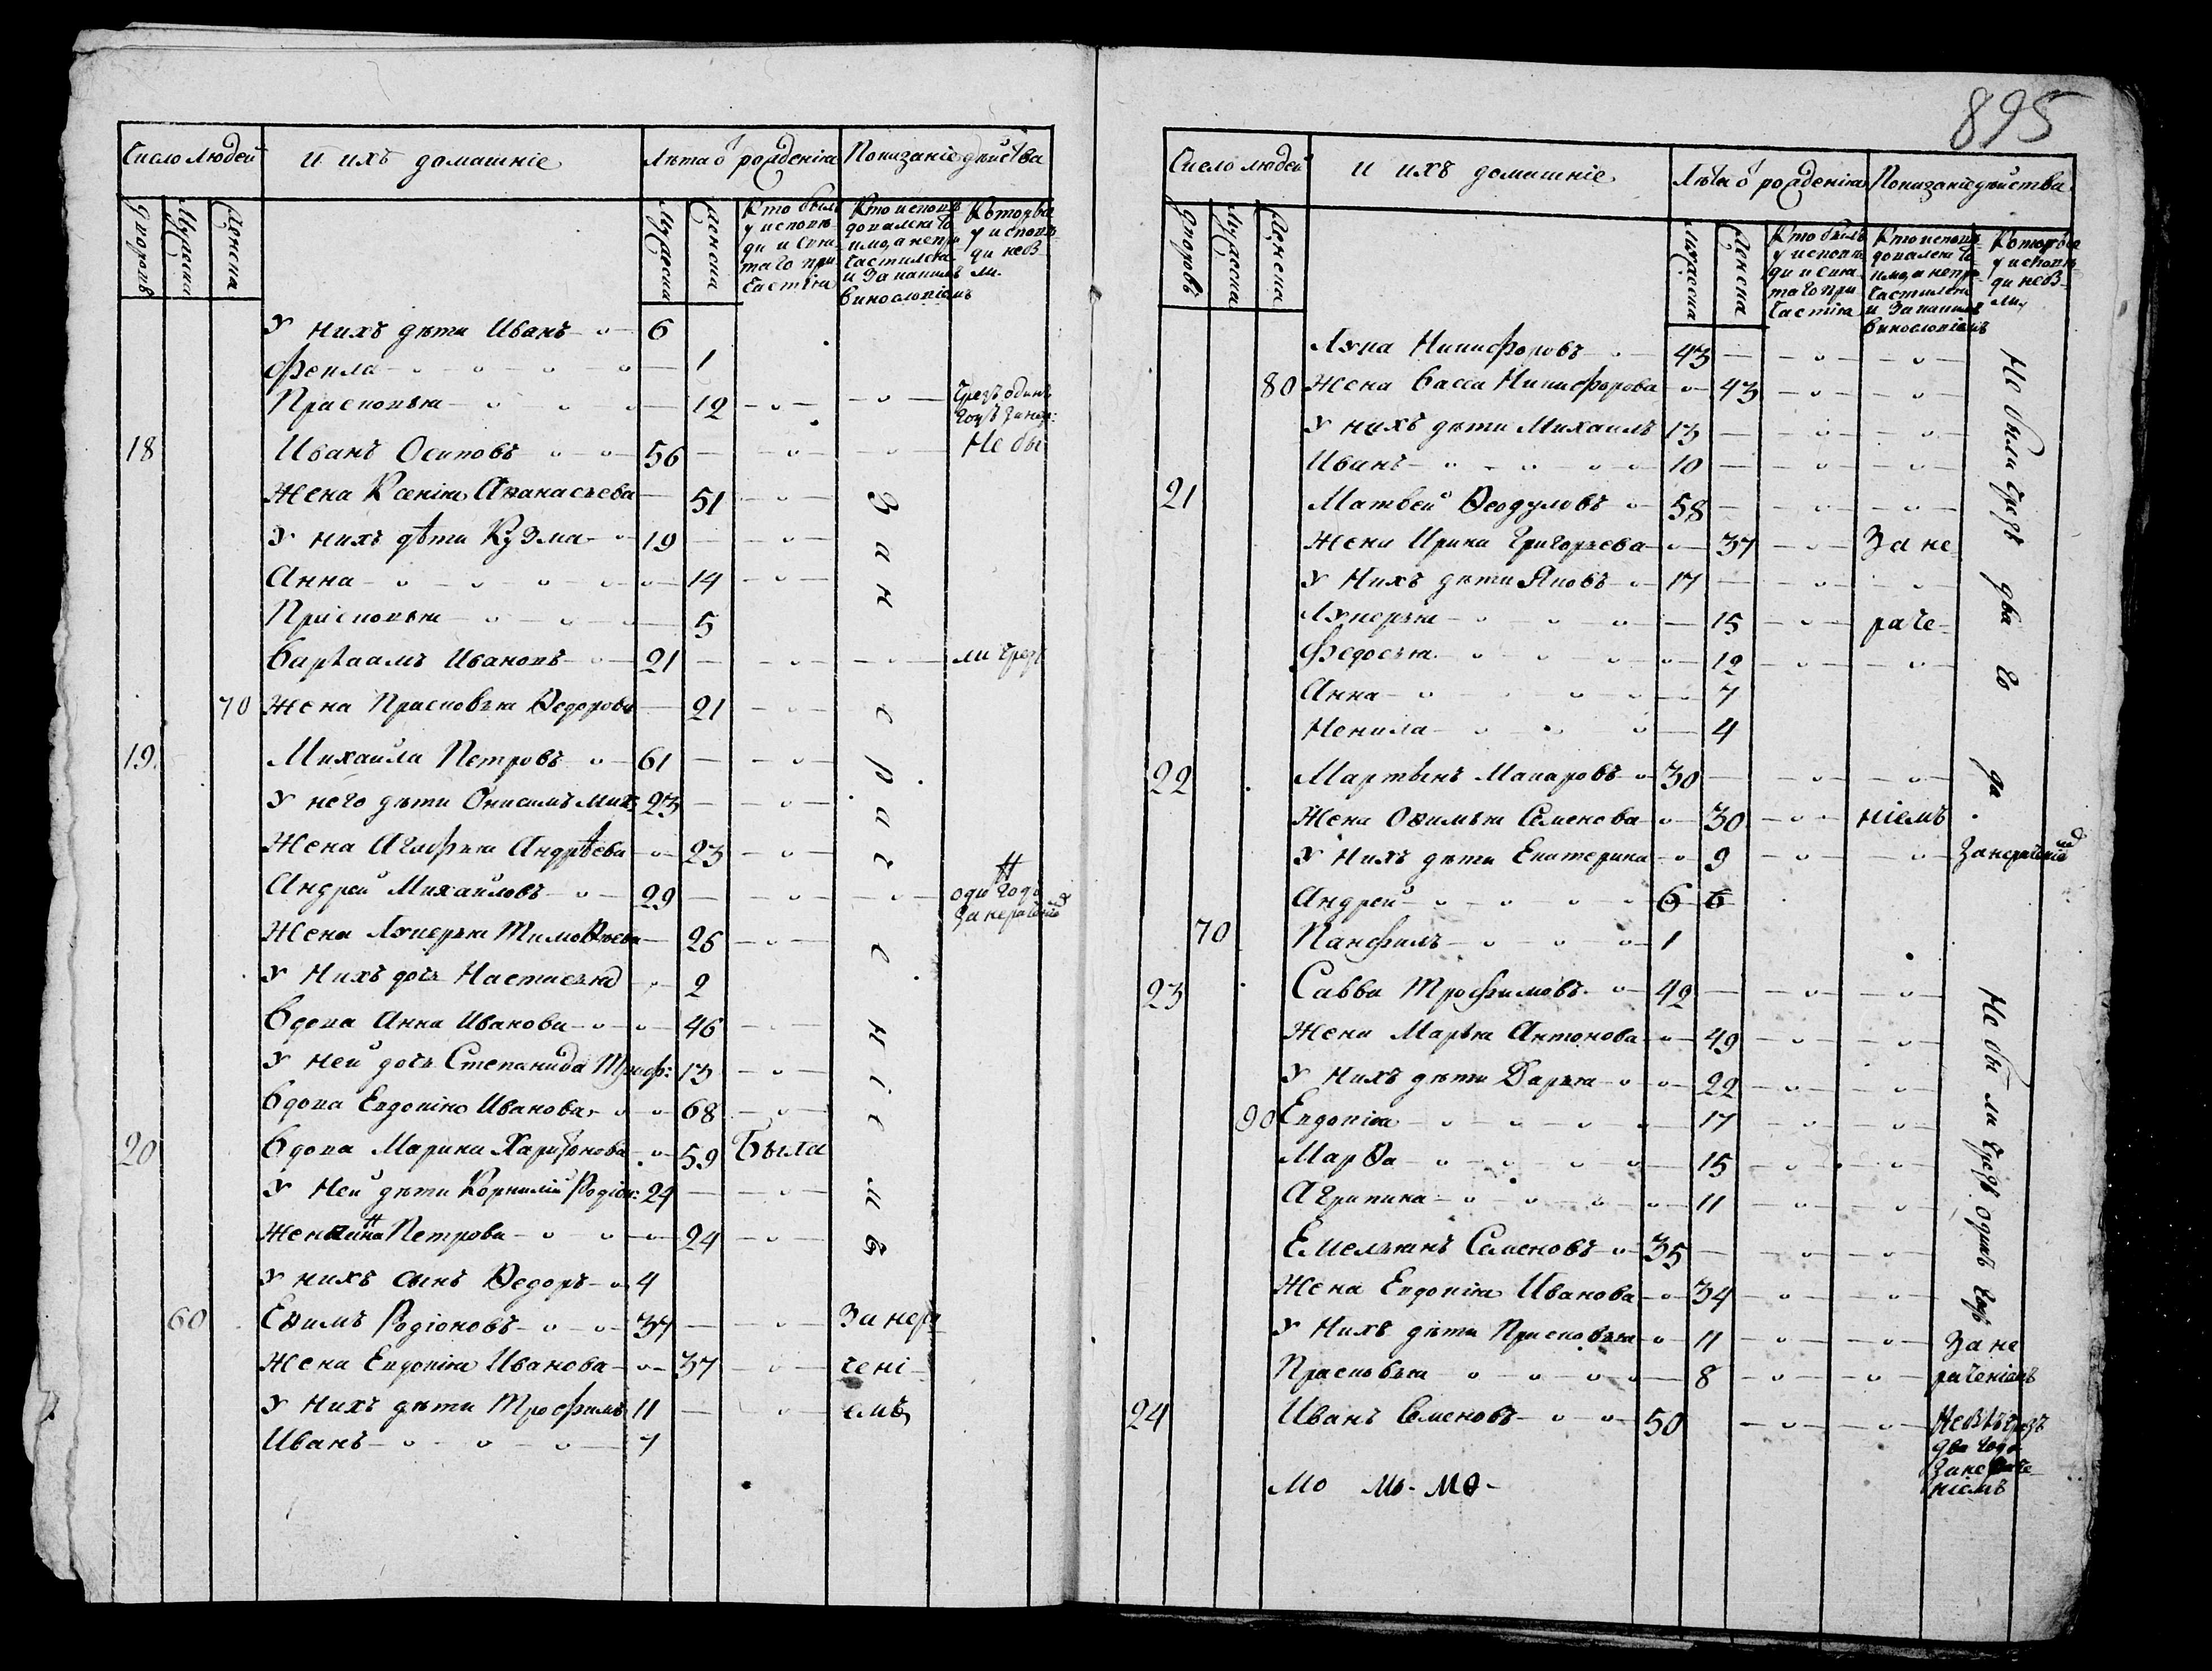 Число людей и ихъ домашніе Лѣта ѿ рожденія Показаніе дѣйства
дворовъ Мужеска Женска Мужеска Женска
Кто былъ у исповѣди и святаго причастія
Кто исповѣдовался токмо, а не причастился и за какимъ винословіемъ
Которые у исповѣди не были
У нихъ дѣти Иванъ 6
Фекла 1
Прасковья 12 Чрезъ одинъ годъ за нер:
18 Иванъ Осиповъ 56 Не бы
Жена Ксенія Аѳанасьева 51
У нихъ дѣти Кузма 19
Анна 14
Прасковья 5
Варлаамъ Ивановъ 21 ли чрезъ
70 Жена Прасковья Ѳедорова 21
19. Михайла Петровъ 61
У него дѣти Онисимъ Мих: 23
Жена Агафья Андрѣева 23
Андрей Михайловъ 29 один годъ за нераченіе
Жена Лукерья Тимоѳеева 26
У нихъ дочь Настасья 2
Вдова Анна Иванова 46
У ней дочь Степанида Троф: 13
Вдова Евдокія Иванова 68
20 Вдова Марина Харитонова 59 Была
У ней дѣти Корнилій Родіон: 24
Жена Петрова 24
У нихъ сынъ Ѳедоръ 4
60 Еѳимъ Родіоновъ 37 За нера
Жена Евдокія Иванова 37 чені
У нихъ дѣти Трофимъ 11 емъ
Иванъ 7
За нераченіемъ
895
Число людей и ихъ домашніе Лѣта ѿ рожденія Показаніе дѣйства
дворовъ Мужеска Женска Мужеска Женска
Кто былъ у исповѣди и святаго причастія
Кто исповѣдовался токмо, а не причастился и за какимъ винословіемъ
Которые у исповѣди не были
Лука Никифоровъ 43
80 Жена Васса Никифорова 43
У нихъ дѣти Михаилъ 13
Иванъ 10
21 Матвей Ѳеодуловъ 58
Жена Ирина Григорьева 37 За не
У нихъ дѣти Яковъ 17
Лукерья 15 раче
Федосья 12
Анна 7
Ненила 4
22 Мартынъ Макаровъ 30
Жена Оѳимья Семенова 30 ніемъ
У нихъ дѣти Екатерина 9 За нераченіе
Андрей 6 6
70 Панфилъ 1
23 Савва Трофимовъ 42
Жена Марья Антонова 49
У нихъ дѣти Дарья 22
90 Евдокія 17
Марѳа 15
Агрипина 11
Емельянъ Семеновъ 35
Жена Евдокія Иванова 34
У нихъ дѣти Прасковья 11 За не
Прасковья 8 раченіемъ
24 Иванъ Семеновъ 50 Не былъ чрезъ два года за нераченіемъ
Не были чрезъ два го да
Не бы ли чрезъ одинъ годъ
Мо Мо- Мѳ-